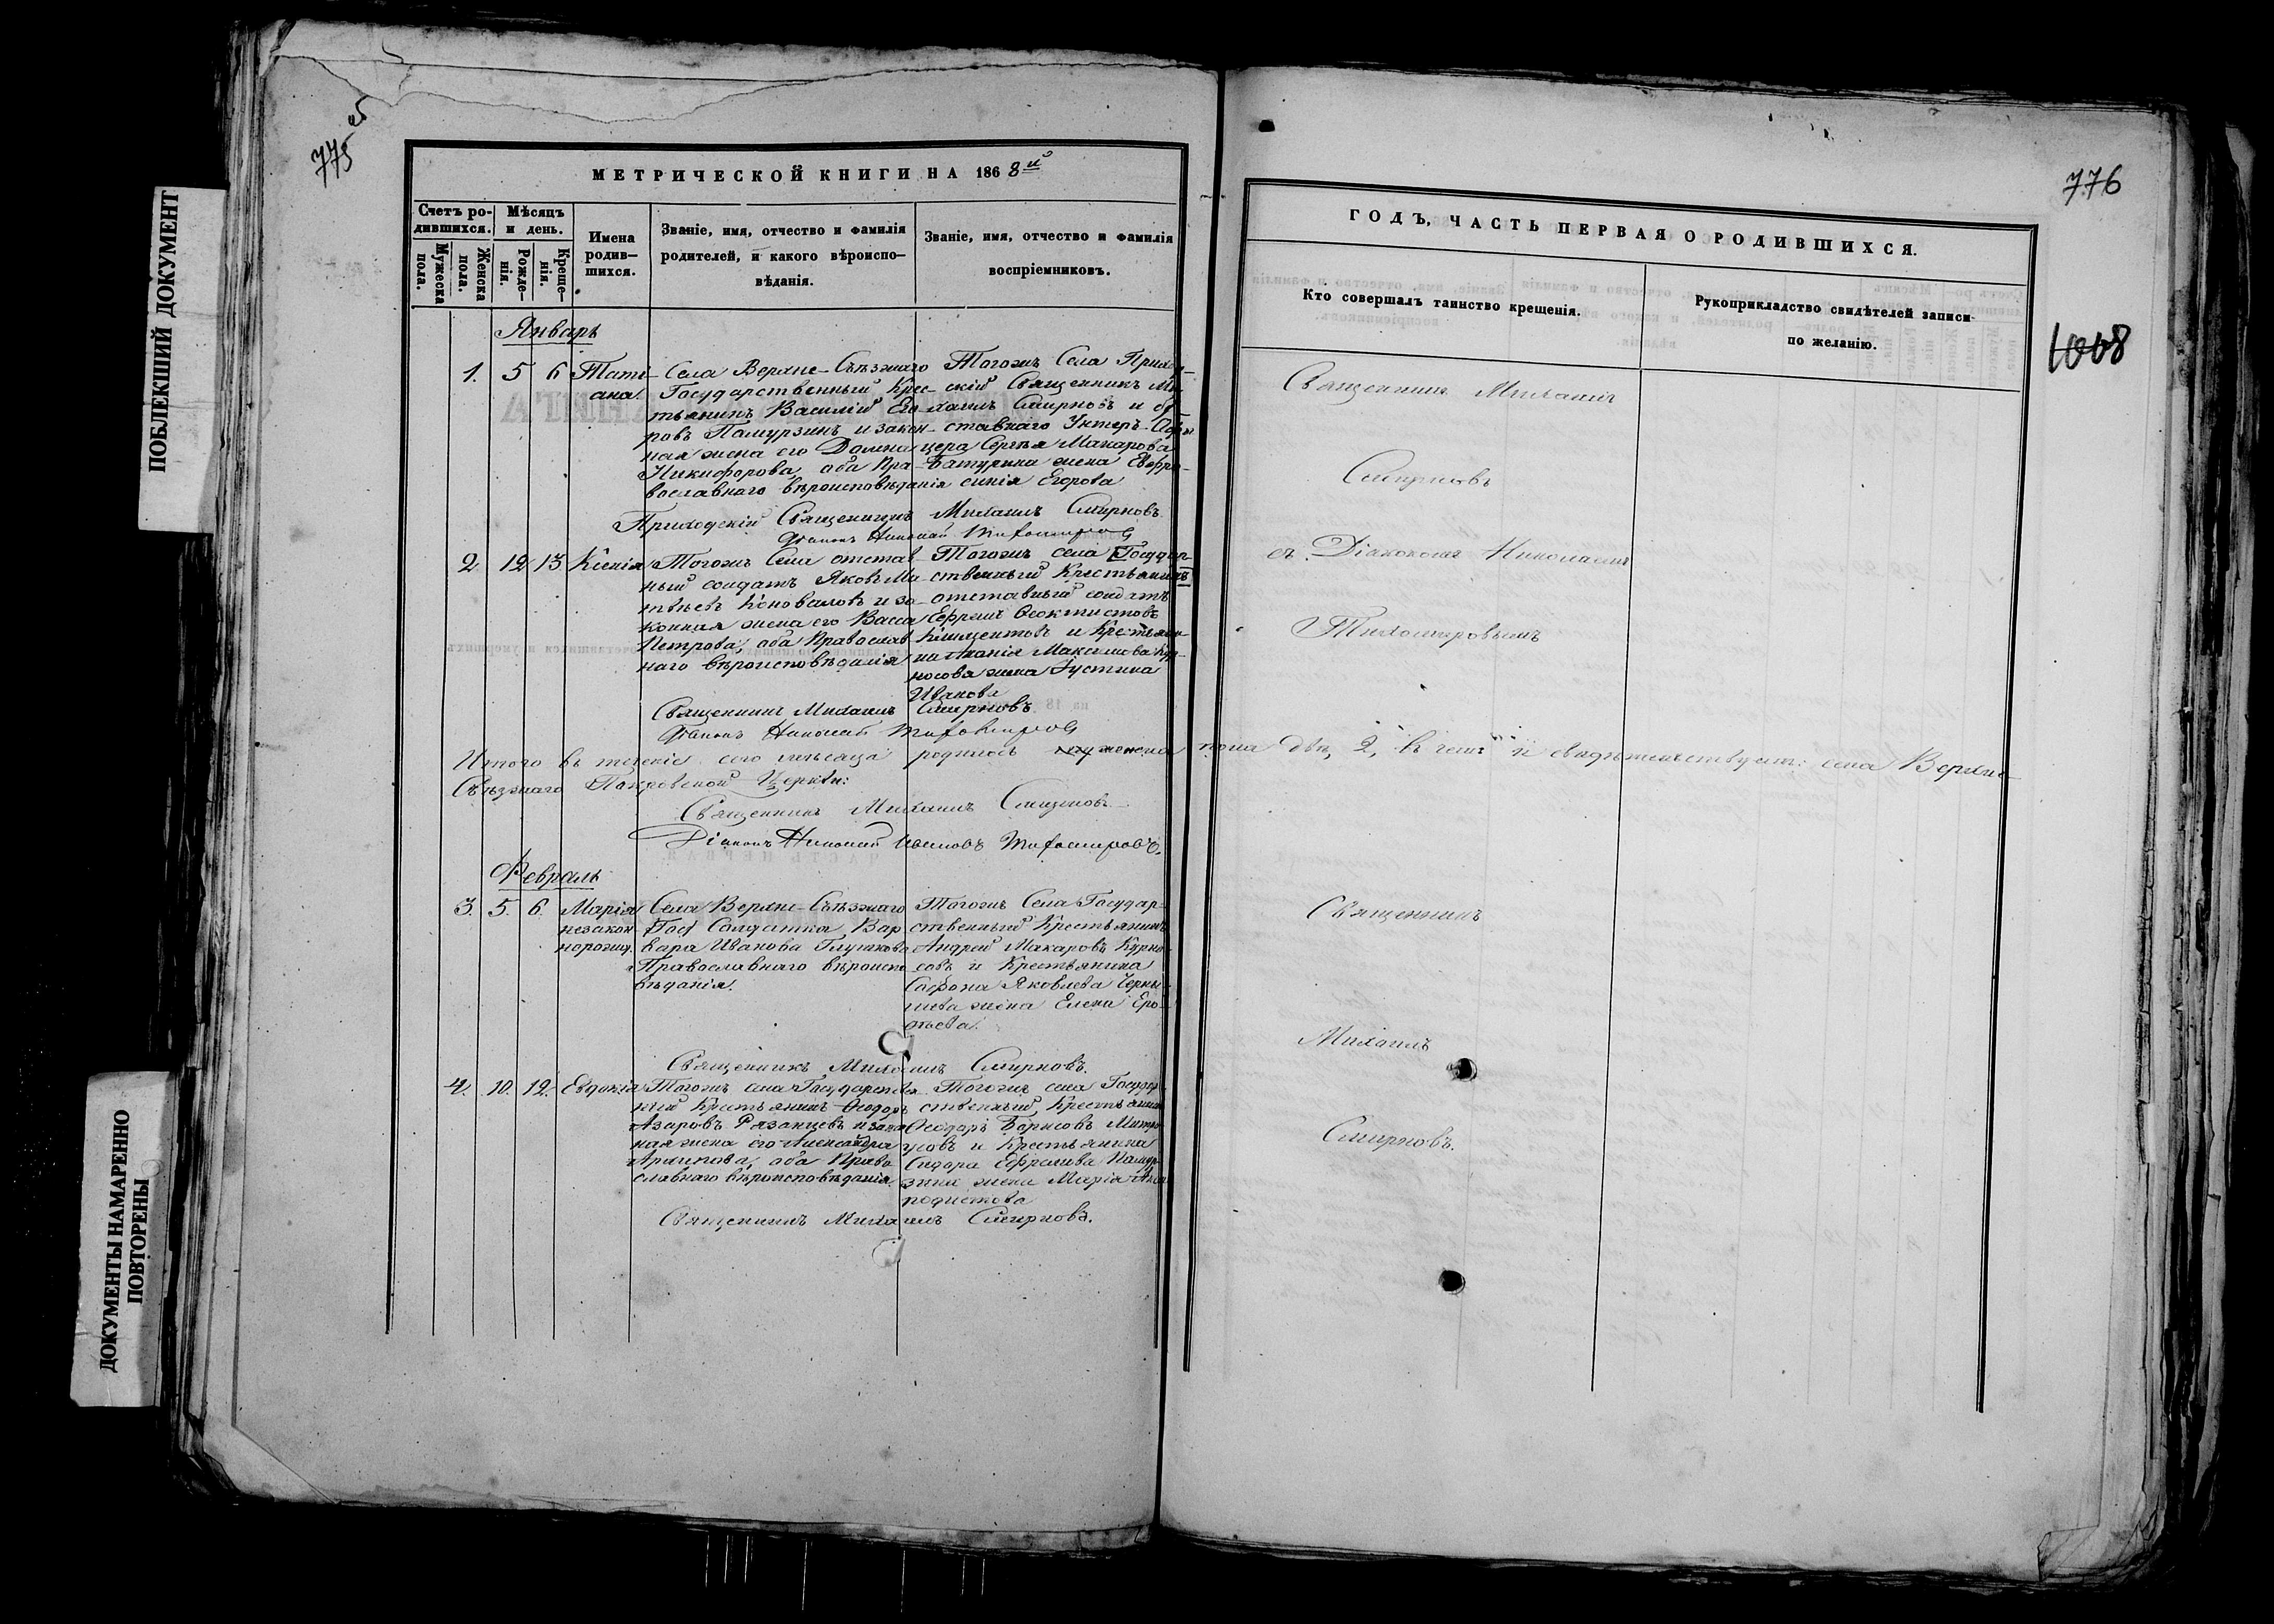 775 об
МЕТРИЧЕСКОЙ КНИГИ НА 1868й
Счетъ родившихся.
Мужеска пола.
Женска пола.
Мѣсяцъ и день.
Рожденія.
Крещенія.
Имена родив-
шихся.
Званіе, имя, отчество и фамилія
родителей, и какого вѣроиспо-
вѣданія.
Званіе, имя, отчество и фамилія
воспріемниковъ.
Январь
1. 5 6 Тати-
ана.
Села Верхне-Съѣзжаго
Государственный Крес-
тьянинъ Василій Его-
ровъ Памурзинъ и закон-
ная жена его Домна
Никифорова, оба Пра-
вославнаго вѣроисповѣданія
Тогожъ Села Приход-
скій Священникъ Ми-
хаилъ Смирновъ и от-
ставнаго Унтеръ-Офи
цера Сергѣя Макарова
Батурина жена Евфро-
синія Егорова
Приходскій Священникъ Михаилъ Смирновъ
Діаконъ Николай Тихомировъ
2. 12 13 Ксенія
Тогожъ Села отстав-
ный солдатъ Яковъ Ма
твѣевъ Коновалов и за-
конная жена его Васса
Петрова, оба Православ
наго вѣроисповѣданія
Тогожъ села [Государ-
ственный Крестьянинъ]
отставный солдатъ
Ефремъ Ѳеоктистовъ
Климентовъ и Крестьяни-
на Максимова Кур-
носова жена Іустина
Иванова
Священникъ Михаилъ Смирновъ
Діаконъ Николай Тихомировъ
Итого въ теченіе сего мѣсяца родилось женска пола двѣ, 2, въ чемъ и свидѣтельствуетъ: села Верхне-
Съѣзжаго Покровской Церкви:
Священникъ Михаилъ Смирновъ
Діаконъ Николай Ивановъ Тихомировъ.
Февраль
3. 5. 6. Марія
незакон
норожд.
Села Верхне-Съѣзжаго
Солдатка Вар
вара Иванова Глухова
Православнаго вѣроиспо
вѣданія.
Тогожъ Села Государ
ственный Крестьянинъ
Андрей Макаровъ Курно
совъ и Крестьянина
Софрона Яковлева Черны
шева жена Елена Еро-
фѣева.
Священникъ Михаилъ Смирновъ.
4. 10. 12. Евдокія
Тогожъ села Государствен
ный Крестьянинъ Ѳеодоръ
Азаровъ Рязанцевъ и закон
ная жена его Александра
Архипова, оба Право
славнаго вѣроисповѣданія.
Тогожъ села Государ
ственный Крестьянинъ
Ѳеодоръ Борисовъ
и Крестьянина
Сидора Ефремова Памур
зина жена Марія
Священникъ Михаилъ Смирновъ.
776
1008
ГОДЪ, ЧАСТЬ ПЕРВАЯ О РОДИВШИХСЯ.
Кто совершалъ таинство крещенія.
Рукоприкладство свидѣтелей записи
по желанію.
Священникъ Михаилъ
Смирновъ
съ Діакономъ Николаемъ
Тихомировымъ
Священникъ
Михаилъ
Смирновъ.
ПОБЛЕКШИЙ ДОКУМЕНТ
ДОКУМЕНТЫ НАМАРЕННО
ПОВТОРЕНЫ